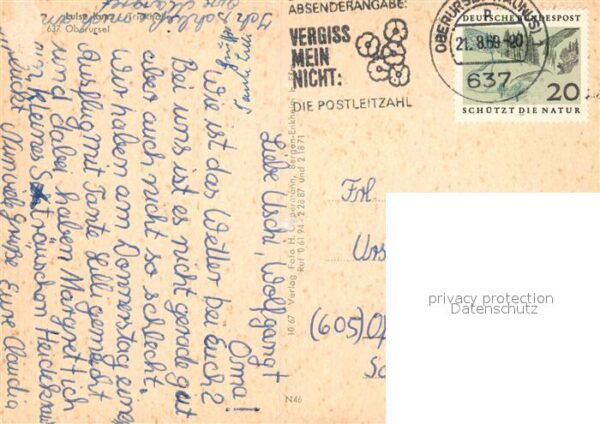 Luise Kunz, Friedrich
637 Oberursel
ABSENDERANGABE:
VERGISS
MEIN
NICHT:
DIE POSTLEITZAHL
OBERURSEL (TAUNUS) 1
21.8.69-20
637
DEUTSCHE BUNDESPOST
20
SCHÜTZT DIE NATUR
Tante Lilli
Liebe Uschi, Wolfgang +
Oma!
Wie ist das Wetter bei euch?
Bei uns ist es nicht gerade gut
aber auch nicht so schlecht.
Wir haben am Donnerstag einen
Ausflug mit Tante Lilli gemacht
und dabei haben Margret + ich
ein kleines Sträuschen Heidekraut
Nun viele Grüße Eure Claudia
10 67 Verlag Foto H. Oppermann, Bergen-Enkheim b. Ffm.
Ruf 0 61 94 - 2 28 87 und 2 18 71
N46
Frl
Urs
(605) Of
Sc
privacy protection
Datenschutz